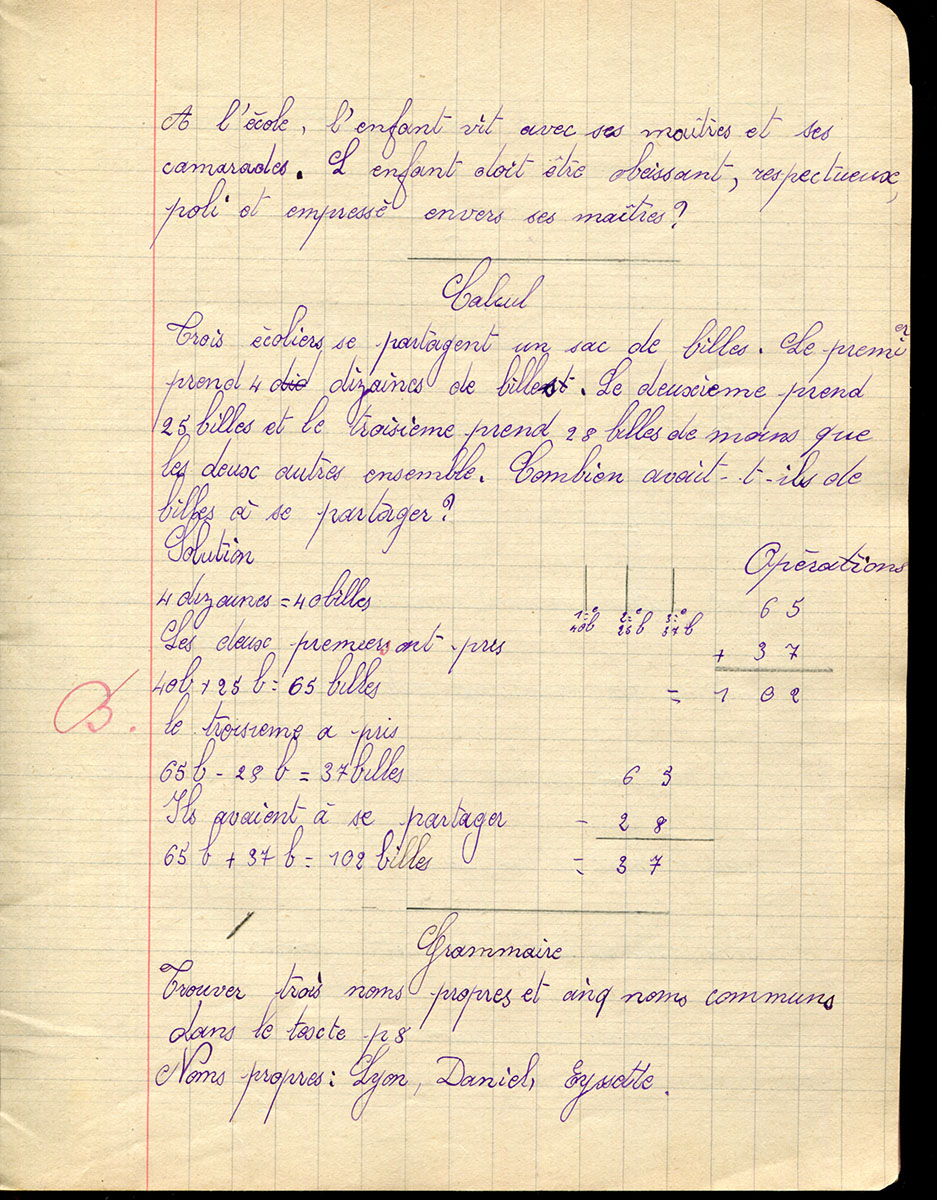 A l'école, l'enfant vit avec ses maîtres et ses
camarades. L'enfant doit être obeissant, respectueux,
poli et empressé envers ses maîtres?
Calcul
Trois écoliers se partagent un sac de billes. Le premier
prend 4 did dizaines de billes. Le deuxieme prend
25 billes et le troisieme prend 28 billes de moins que
les deux autres ensemble. Combien avait-t-ils de
billes à se partager?
Solution
Opérations
4 dizaines = 40 billes
1e 2e 3e
40b 25b 37b
6 5
Les deux premiers ont pris
+ 3 7
40b + 25 b = 65 billes
= 1 0 2
B.
le troisieme a pris
65 b - 28 b = 37 billes
6 5
Ils avaient à se partager
- 2 8
65 b + 37 b = 102 billes
= 3 7
Grammaire
Trouver trois noms propres et cinq noms communs
dans le texte p 8
Noms propres: Lyon, Daniel, Eyssette.